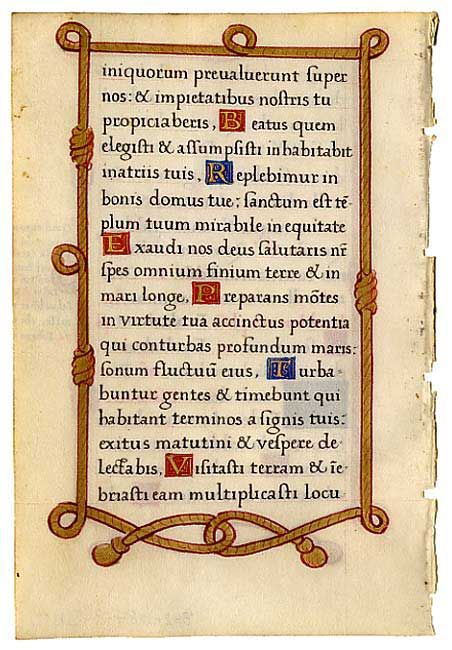 iniquorum preualuerunt ſuper
nos: & impietatibus noſtris tu
propiciaberis, Beatus quem
elegiſti & aſſumpſiſti inhabitabit
inatriis tuis, Replebimur in
bonis domus tue; ſanctum eſt tē-
plum tuum mirabile in equitate
Exaudi nos deus ſalutaris nr̄
ſpes omnium finium terre & in
mari longe, Preparans mōtes
in virtute tua accinctus potentia
qui conturbas profundum maris:
ſonum fluctuū eius, Turba-
buntur gentes & timebunt qui
habitant terminos a ſignis tuis:
exitus matutini & veſpere de-
lectabis, Viſitaſti terram & īe-
briaſti eam multiplicaſti locu-